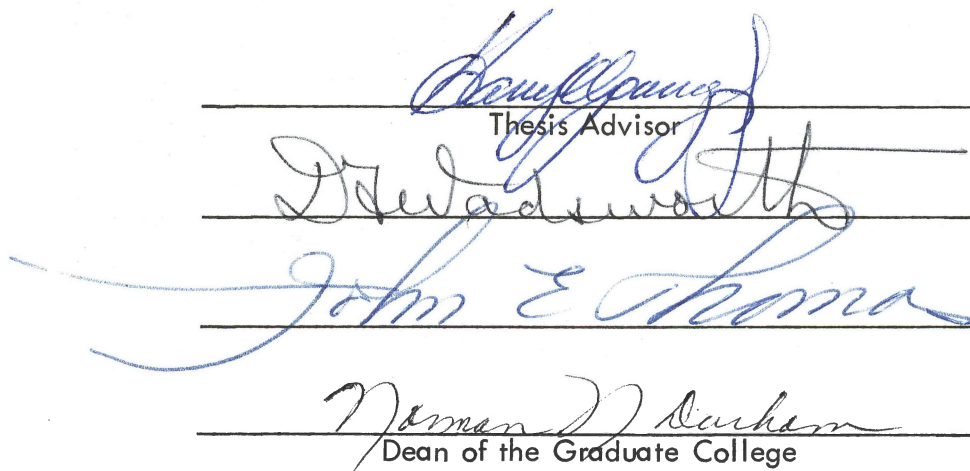 Thesis Advisor
D F Wadsworth
John E Thomas
Norman N Durham
Dean of the Graduate College